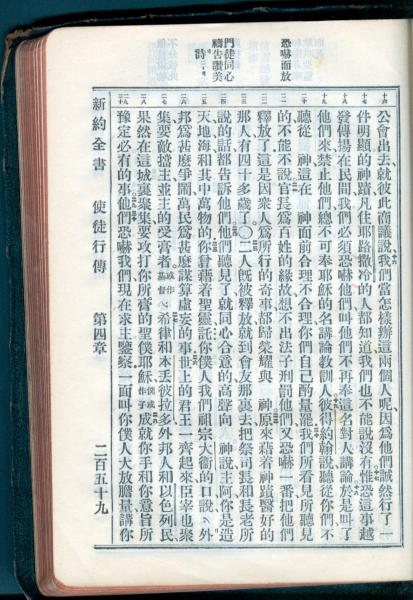 恐嚇而放
門徒同心
禱告讚美
公會出去、就彼此商議說我們當怎樣辦這兩個人呢因爲他們誠然行了一
件明顯的神蹟凡住耶路撒冷的人都知道我們也不能說沒有惟恐這事越
發傳揚在民間我們必須恐嚇他們叫他們不再奉這名對人講論於是叫了
他們來禁止他們總不可奉耶穌的名講論教訓人彼得約翰說聽從你們不
聽從　神這在　神面前合理不合理你們自己酌量罷我們所看見所聽見
的不能不說官長爲百姓的緣故想不出法子刑罰他們又恐嚇一番把他們
釋放了這是因衆人爲所行的奇事都歸榮耀與　神原來藉着神蹟醫好的
那人有四十多歲了〇二人旣被釋放就到會友那裏去把祭司長和長老所
說的話都告訴他們他們聽見了就同心合意的高聲向　神說主阿你是造
天地海和其中萬物的你曾藉着聖靈託你僕人我們祖宗大衞的口說外
邦爲甚麼爭鬧萬民爲甚麼謀算虛妄的事世上的君王一齊起來臣宰也聚
集要敵擋主並主的受膏者或作基督希律和本丟彼拉多外邦人和以色列民
果然在這城裏聚集要攻打你所膏的聖僕耶穌僕或作子成就你手和你意旨所
豫定必有的事他們恐嚇我們現在求主鑒察一面叫你僕人大放膽量講你
新約全書　使徒行傳　第四章　二百五十九